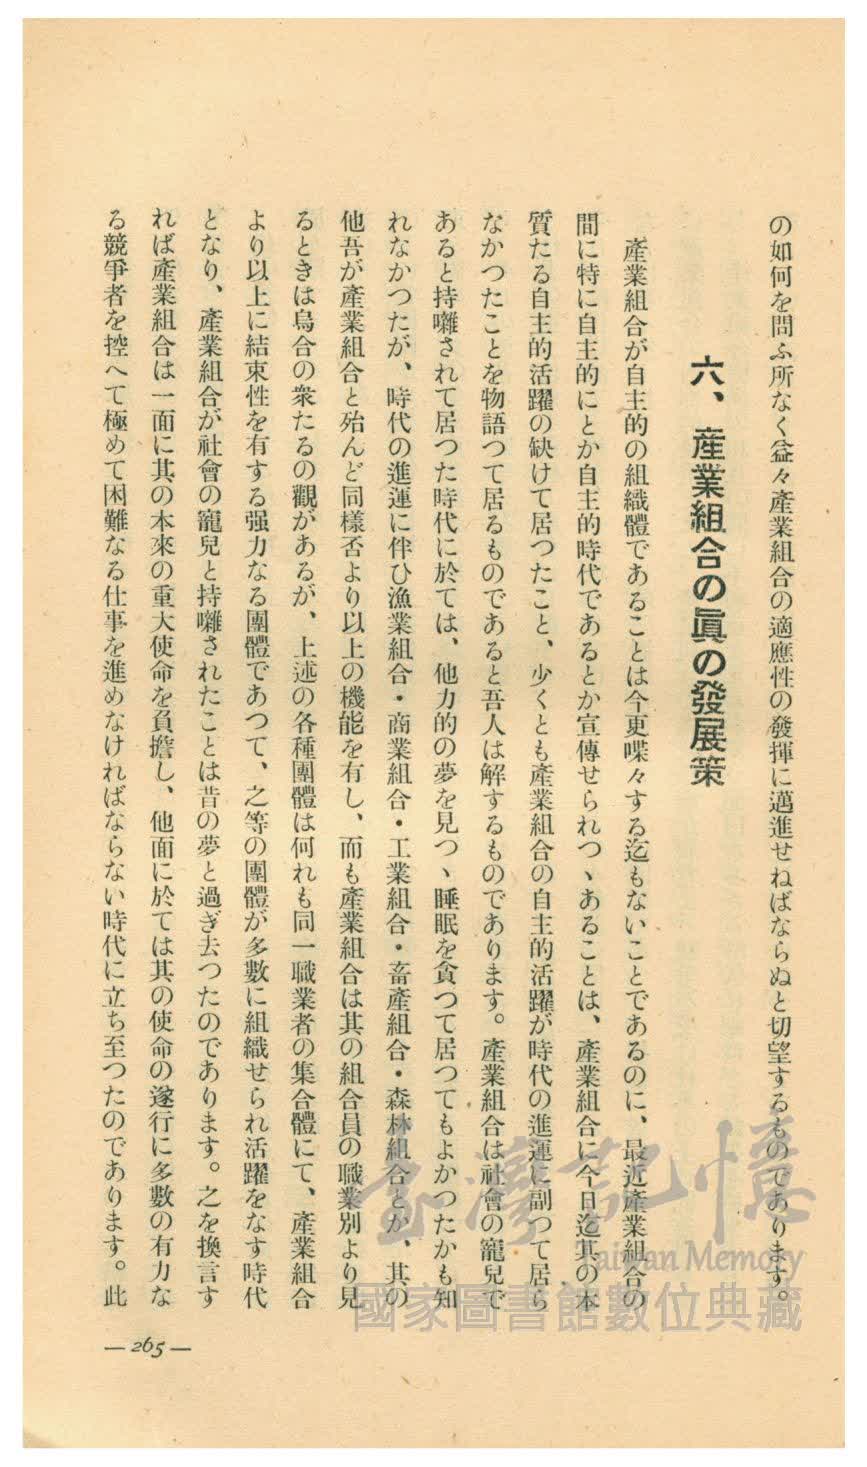 の如何を問ふ所なく益々產業組合の適應性の發揮に邁進せねばならぬと切望するものであります。
六、產業組合の眞の發展策
產業組合が自主的の組織體であることは今更喋々する迄もないことであるのに、最近產業組合の
間に特に自主的にとか自主的時代であるとか宣傳せられつゝあることは、產業組合に今日迄其の本
質たる自主的活躍の缺けて居つたこと、少くとも產業組合の自主的活躍が時代の進運に副つて居ら
なかつたことを物語つて居るものであると吾人は解するものであります。產業組合は社會の寵兒で
あると持囃されて居つた時代に於ては、他力的の夢を見つゝ睡眠を貪つて居つてもよかつたかも知
れなかつたが、時代の進運に伴ひ漁業組合・商業組合・工業組合・畜產組合・森林組合とか、其の
他吾が產業組合と殆んど同樣否より以上の機能を有し、而も產業組合は其の組合員の職業別より見
るときは烏合の衆たるの觀があるが、上述の各種團體は何れも同一職業者の集合體にて、產業組合
より以上に結束性を有する强力なる團體であつて、之等の團體が多數に組織せられ活躍をなす時代
となり、產業組合が社會の寵兒と持囃されたことは昔の夢と過ぎ去つたのであります。之を換言す
れば產業組合は一面に其の本來の重大使命を負擔し、他面に於ては其の使命の遂行に多數の有力な
る競爭者を控へて極めて困難なる仕事を進めなければならない時代に立ち至つたのであります。此
— 265 —
臺灣記憶
Taiwan Memory
國家圖書館數位典藏